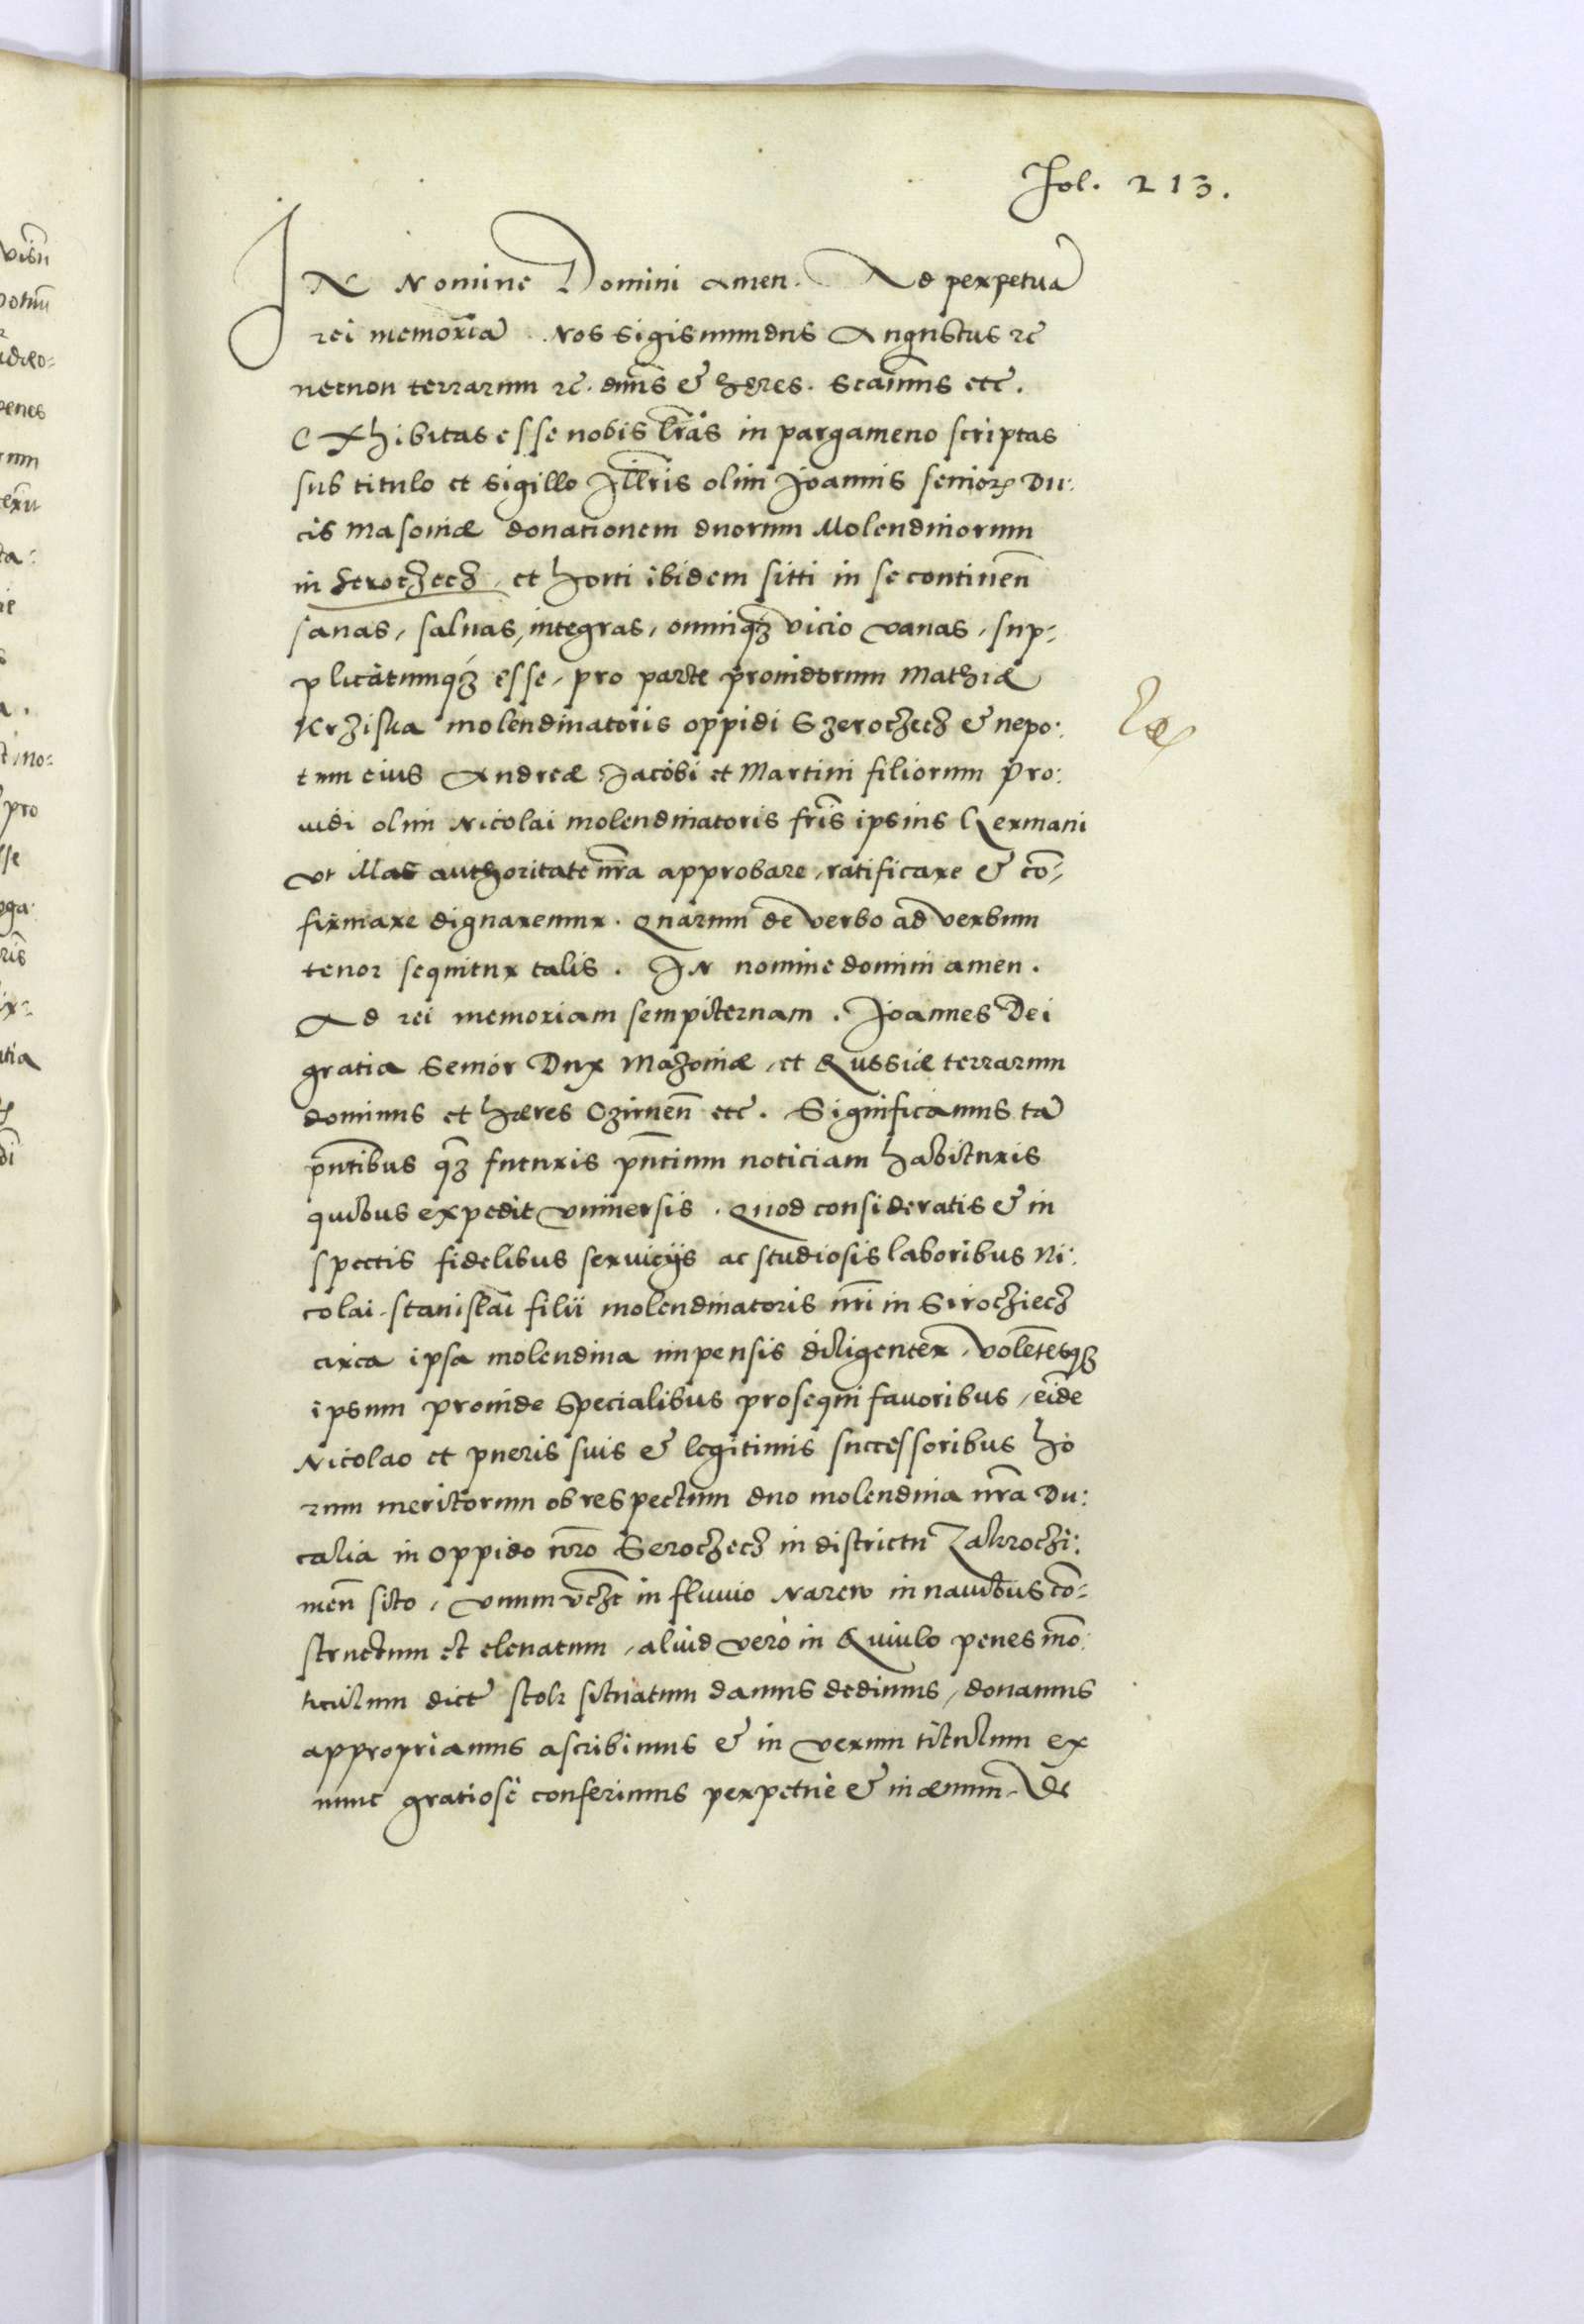 Fol. 213.
IN Nomine Domini Amen. Ad perpetuã
rei memoriã Nos Sigismundus Augustus ꝛc̃
necnon terrarum ꝛc̃. dñus & heres. Scaimus etc̃.
Exhibitas esse nobis lr̃as in pargameno scriptas
sub titulo et sigillo Illr̃is olim Joannis senioꝝ Du:
cis Masoniæ donationem duorum Molendinorum
in Seroczecz, et horti ibidem sitti in se continen̄
sanas, saluas, integras, omniqꝫ vicio vanas, sup-
plicatumqꝫ esse, pro parte prouidorum Mathiæ
Krziska molendinatoris oppidi Szeroczecz & nepo:
tum eius Andreæ Jacobi et Martini filiorum pro:
uidi olim Nicolai molendinatoris fr̃is ipsius Germani
vt illas authoritate nr̃a approbare, ratificare & cõ-
firmare dignaremur. Quarum de verbo ad verbum
tenor sequitur talis. IN nomine domini amen.
Ad rei memoriam sempiternam. Joannes Dei
gratia Senior Dux Mazoniæ, et Russiæ terrarum
dominus et hæres Czirnen̄ etc̃. Significamus tã
pñtibus qꝫ futuris pñtium noticiam habituris
quibus expedit vniuersis. Quod consideratis & in
spectis fidelibus seruicijs ac studiosis laboribus Ni:
colai Stanislai filii molendinatoris nr̃i in Sirocziecz
circa ipsa molendina impensis diligenter, volẽtesqꝫ
ipsum prouide specialibus prosequi fauoribus, eidẽ
Nicolao et pueris suis & legitimis successoribus ho
rum meritorum ob respectum duo molendina nr̃a Du:
calia in oppido nr̃o Seroczecz in districtu Zakroczi:
men̄ sito, vnum vczt̃ in fluuio Narew in nauibus cõ-
structum et eleuatum, aliud vero in Riuulo penes mõ:
ticulum dict̃ stok situatum damus dedimus, donamus
appropriamus ascribimus & in verum titulum ex
nunc gratiose conferimus perpetue & in æuum. De